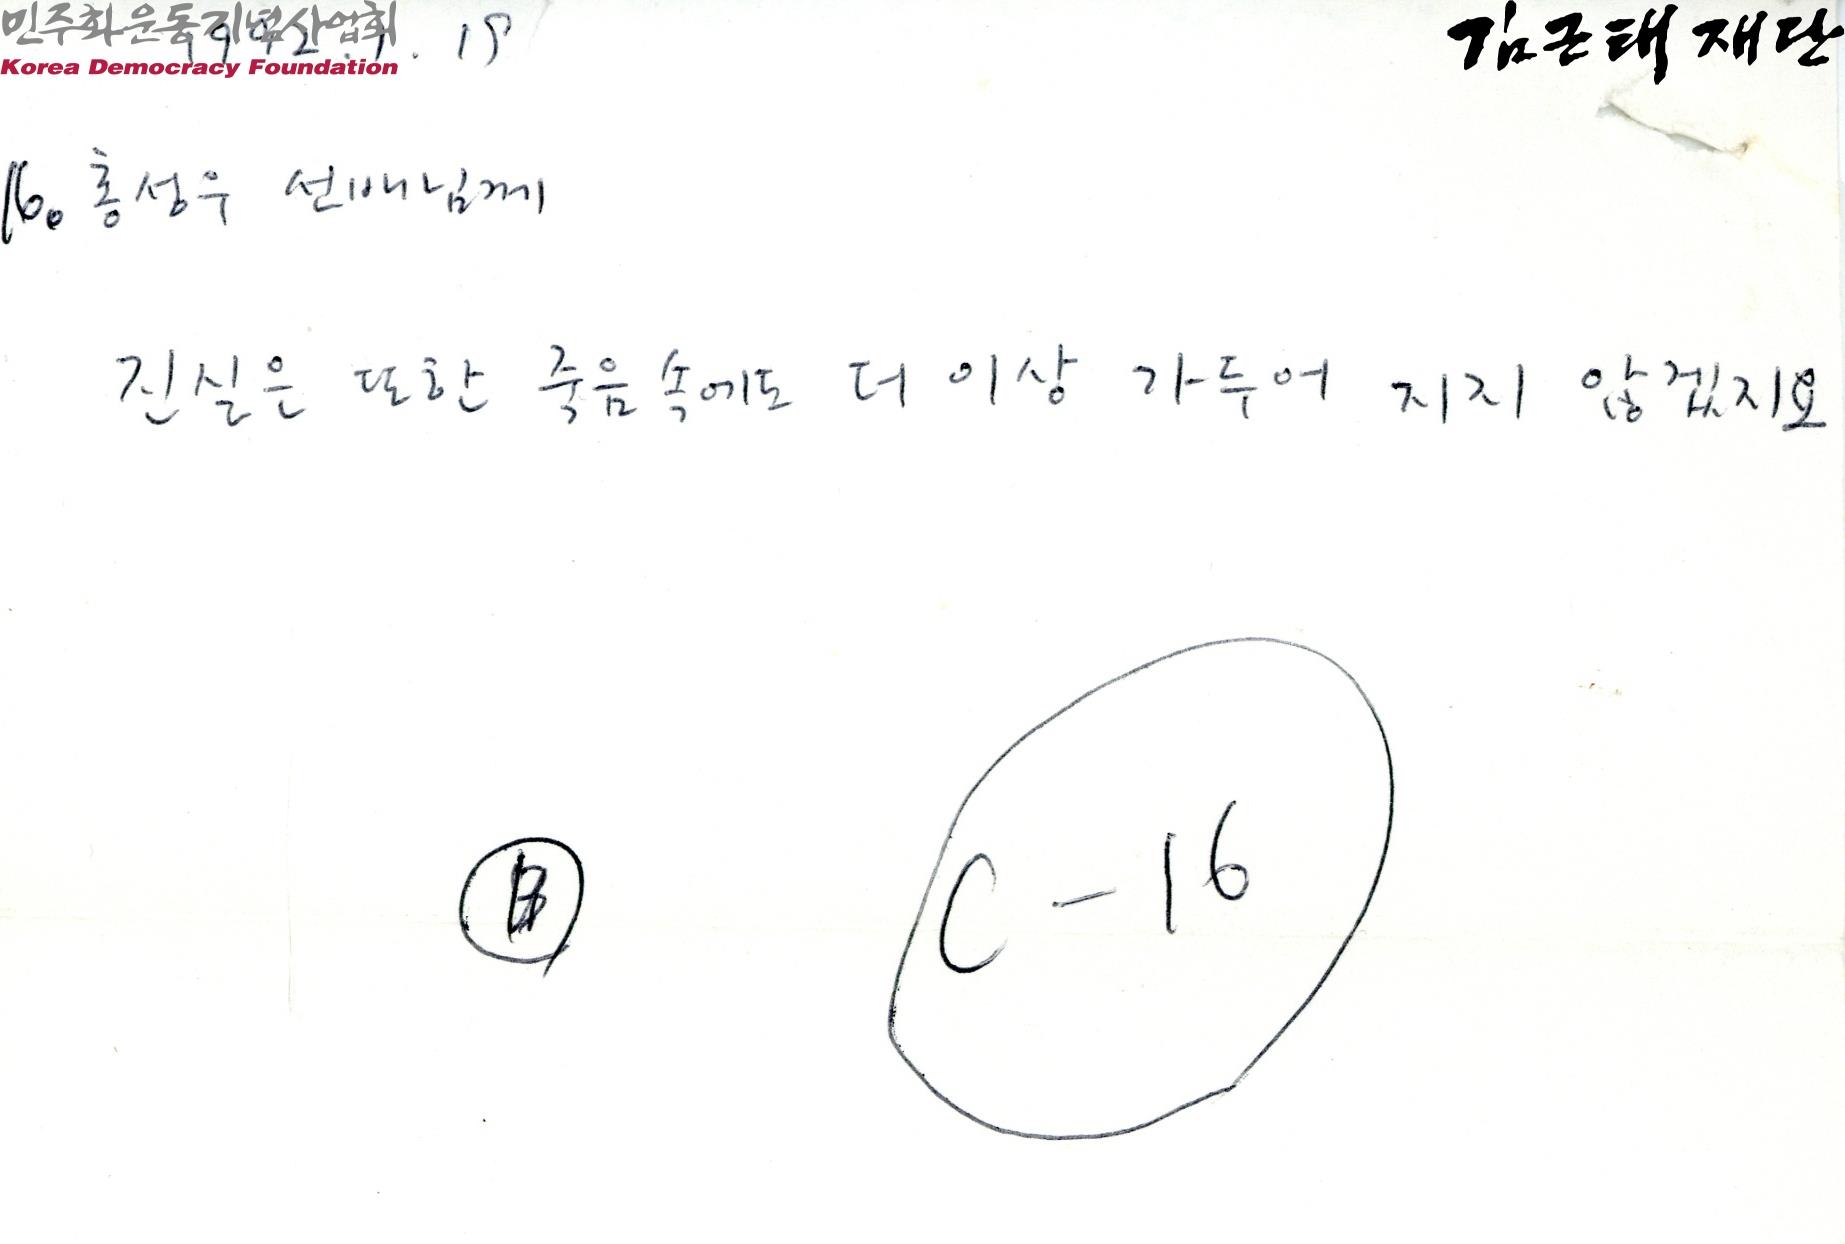 민주화운동기념사업회
Korea Democracy Foundation
김근태재단
16. 홍성우 선배님께
진실은 또한 죽음속에도 더 이상 가두어 지지 않겠지요
B
C-16